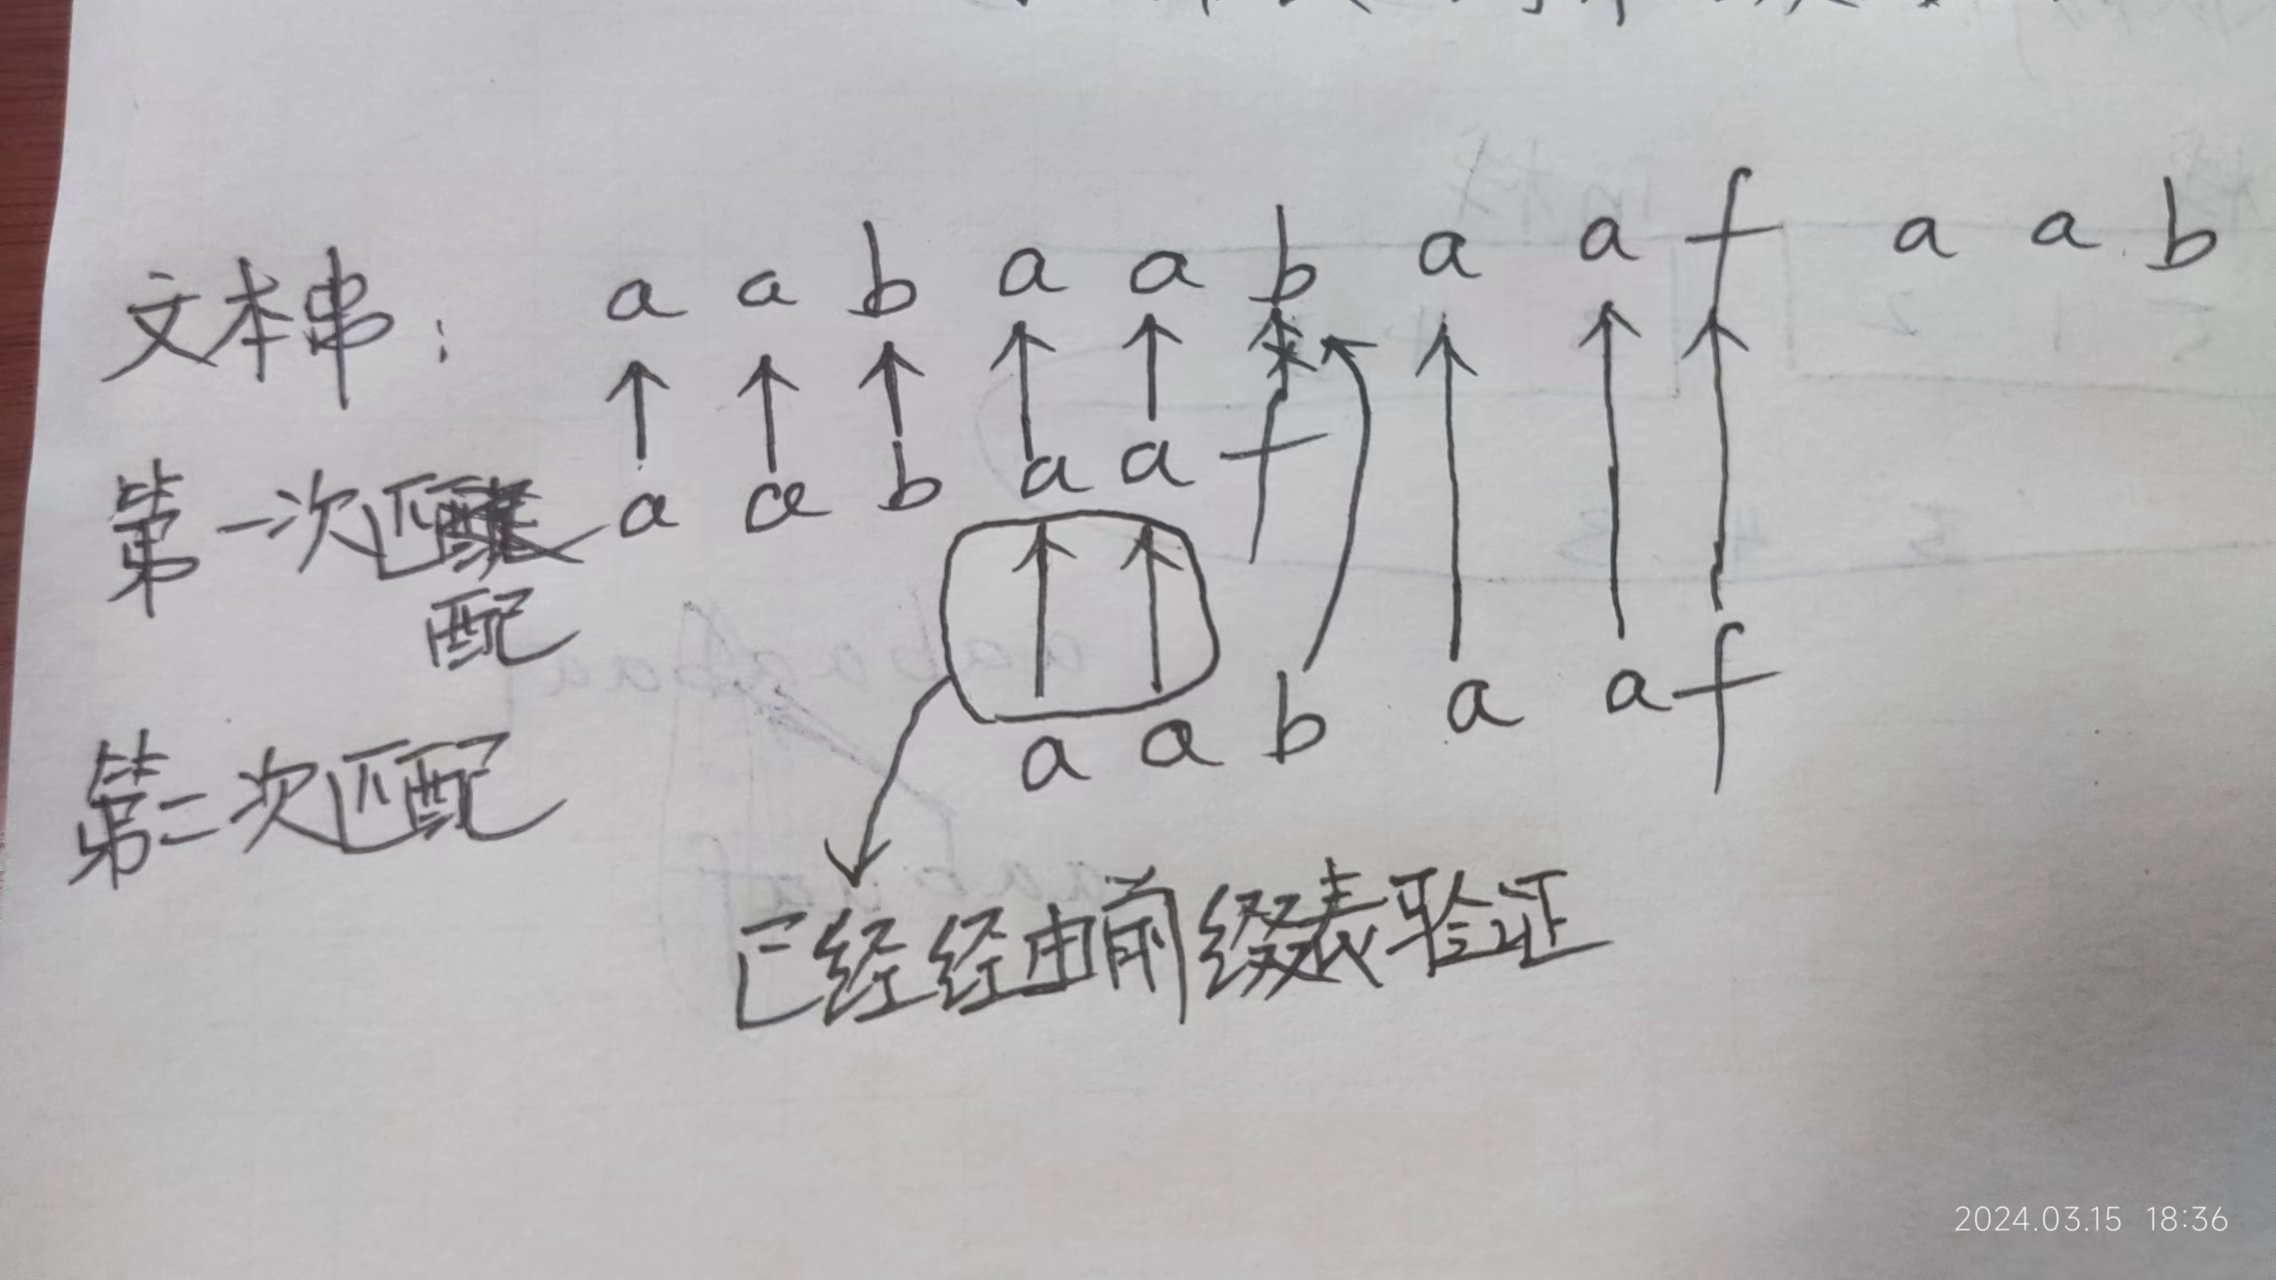 文本串: a a b a a b a a f a a b
第一次匹配 a a b a a f
第二次匹配 a a b a a f
已经经由前缀表验证
2024.03.15 18:36